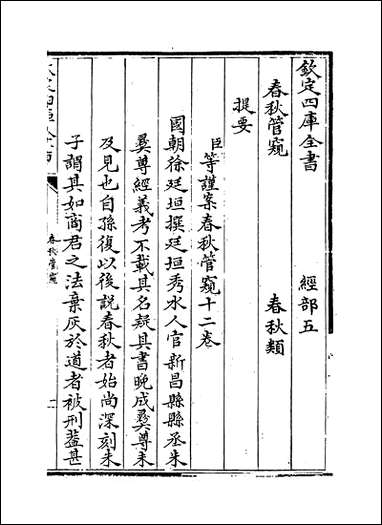 欽定四庫全書　經部五
春秋管窺　春秋類
提要
臣等謹案春秋管窺十二卷
國朝徐廷垣撰廷垣秀水人官新昌縣縣丞朱
彛尊經義考不載其名疑其書晚成彛尊未
及見也自孫復以後説春秋者始尚深刻朱
子謂其如商君之法棄灰於道者被刑葢甚
春秋管窺